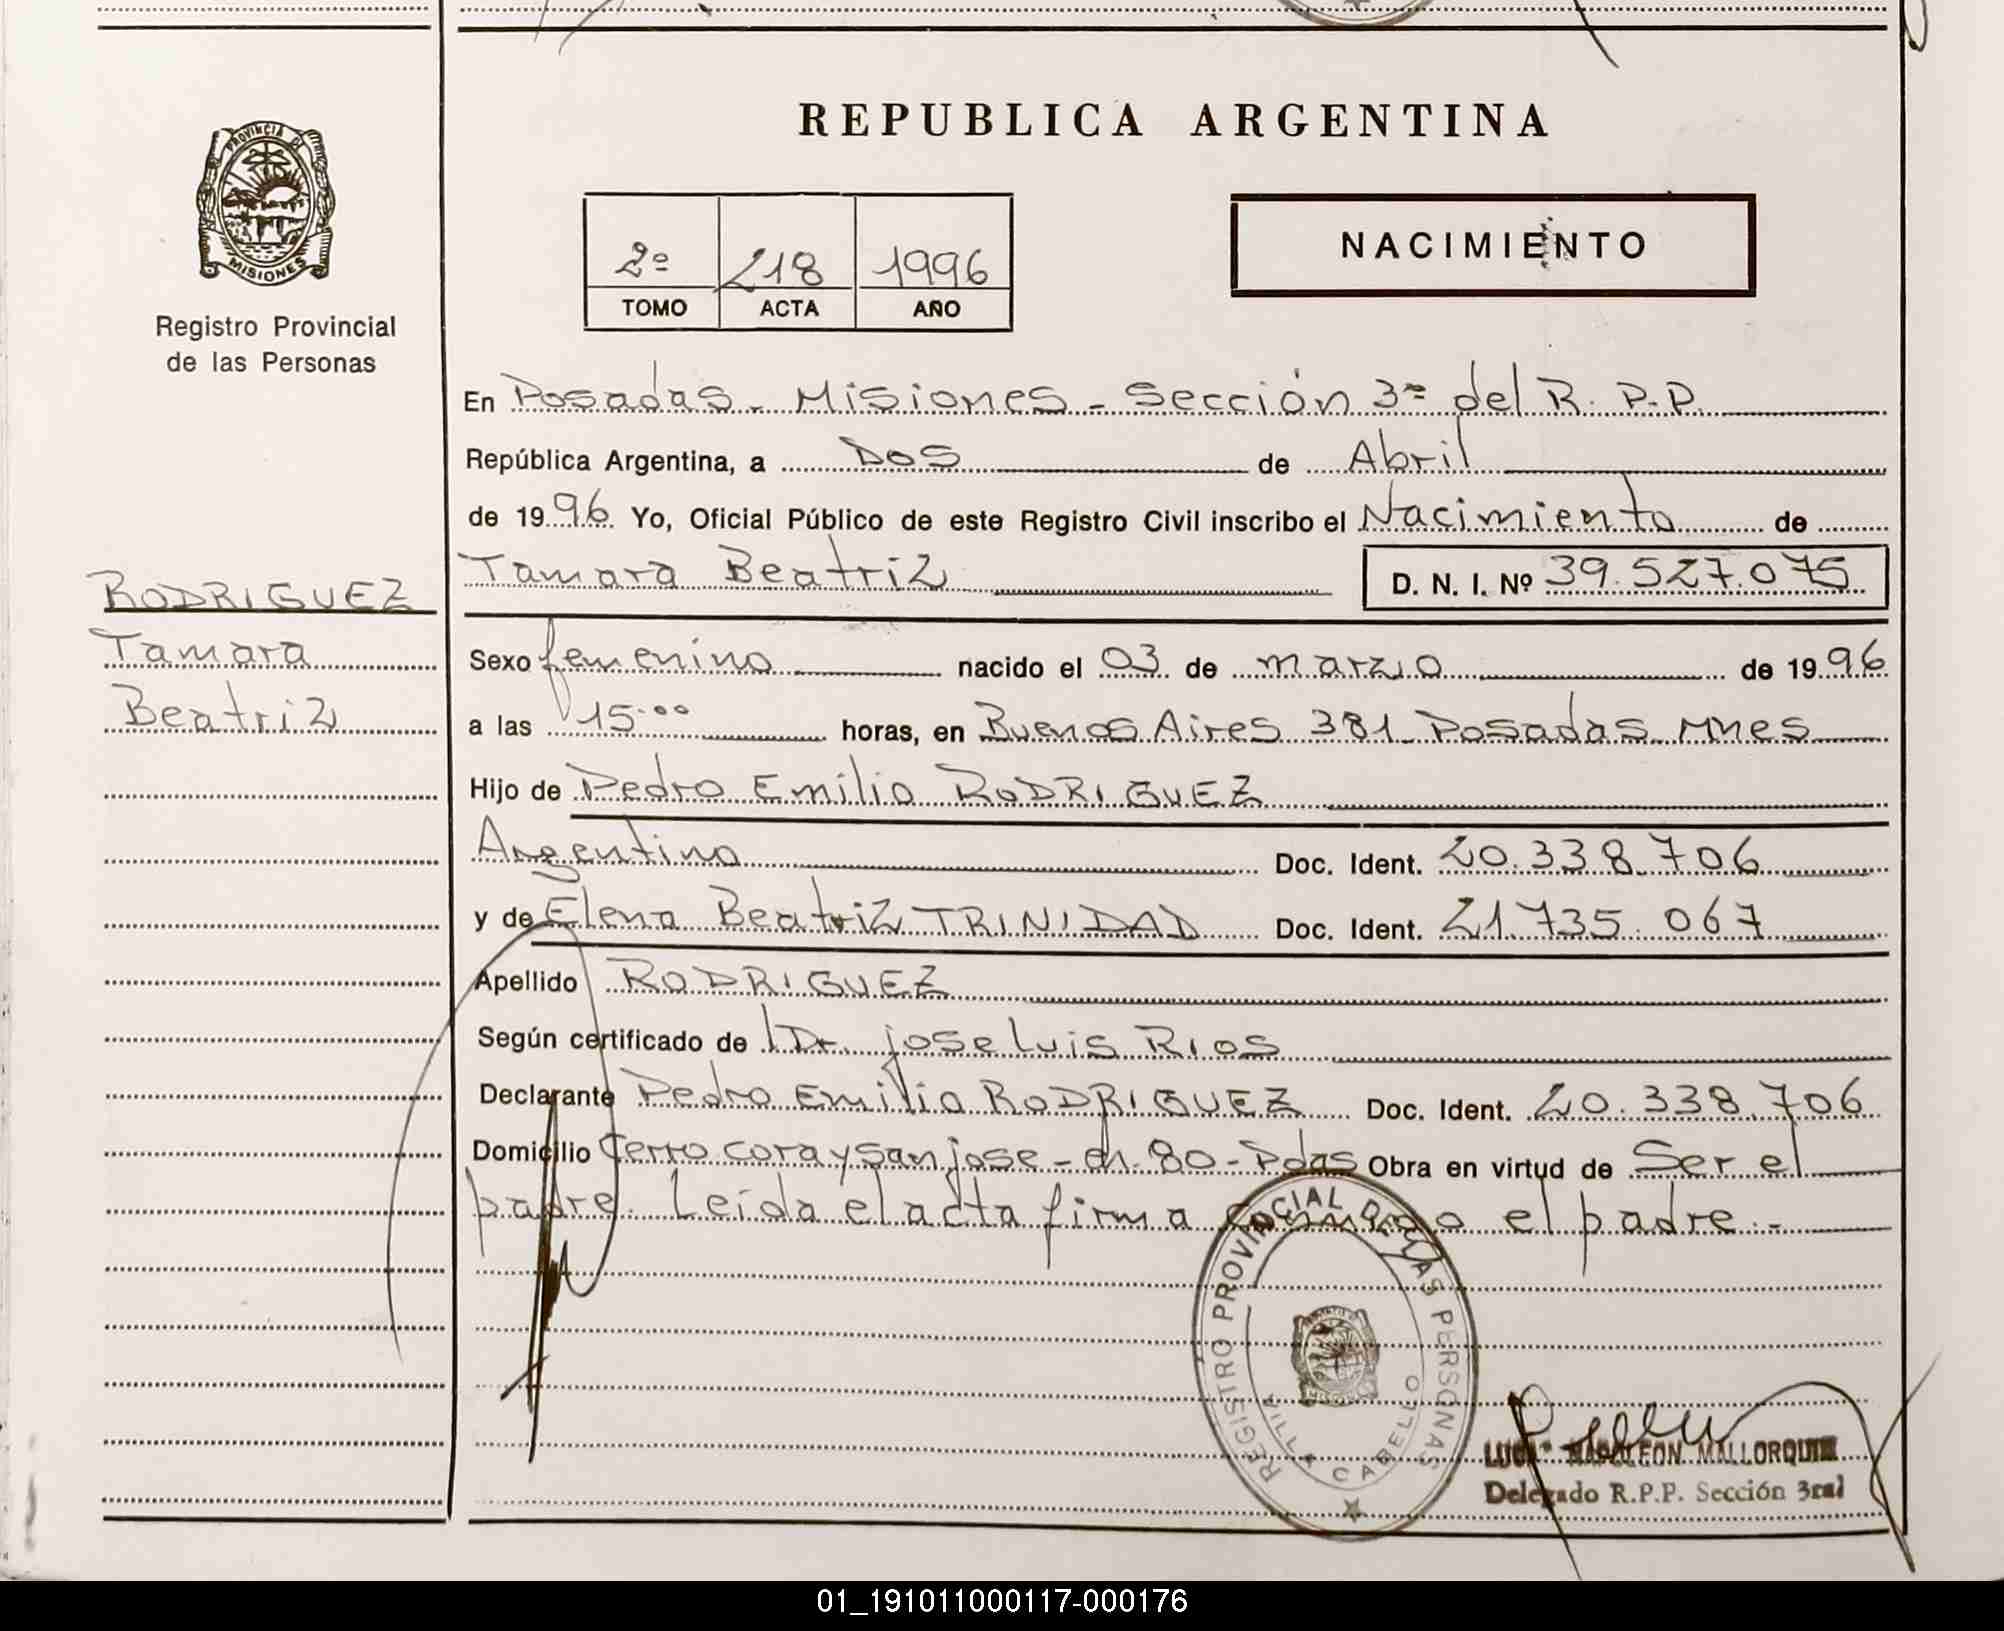 REPUBLICA ARGENTINA
PROVINCIA DE
MISIONES
Registro Provincial
de las Personas
2º 218 1996
TOMO ACTA AÑO
NACIMIENTO
En Posadas - Misiones - Sección 3ª del R. P.P.
República Argentina, a Dos de Abril
de 1996 Yo, Oficial Público de este Registro Civil inscribo el Nacimiento de
Tamara Beatriz D. N. I. Nº 39.527.075
RODRIGUEZ
Tamara
Beatriz
Sexo femenino nacido el 03 de marzo de 1996
a las 15:00 horas, en Buenos Aires 381 Posadas Mnes
Hijo de Pedro Emilio RODRIGUEZ
Argentino Doc. Ident. 20.338.706
y de Elena Beatriz TRINIDAD Doc. Ident. 21.735.067
Apellido RODRIGUEZ
Según certificado de Dr. jose Luis Rios
Declarante Pedro Emilio RODRIGUEZ Doc. Ident. 20.338.706
Domicilio Cerro cora y san jose - ch. 80 - Pdas Obra en virtud de Ser el
padre. Leida el acta firma conmigo el padre.-
REGISTRO PROVINCIAL DE LAS PERSONAS
VILLA CABELLO
NAPOLEON MALLORQUIN
Delegado R.P.P. Sección 3ra
01_191011000117-000176